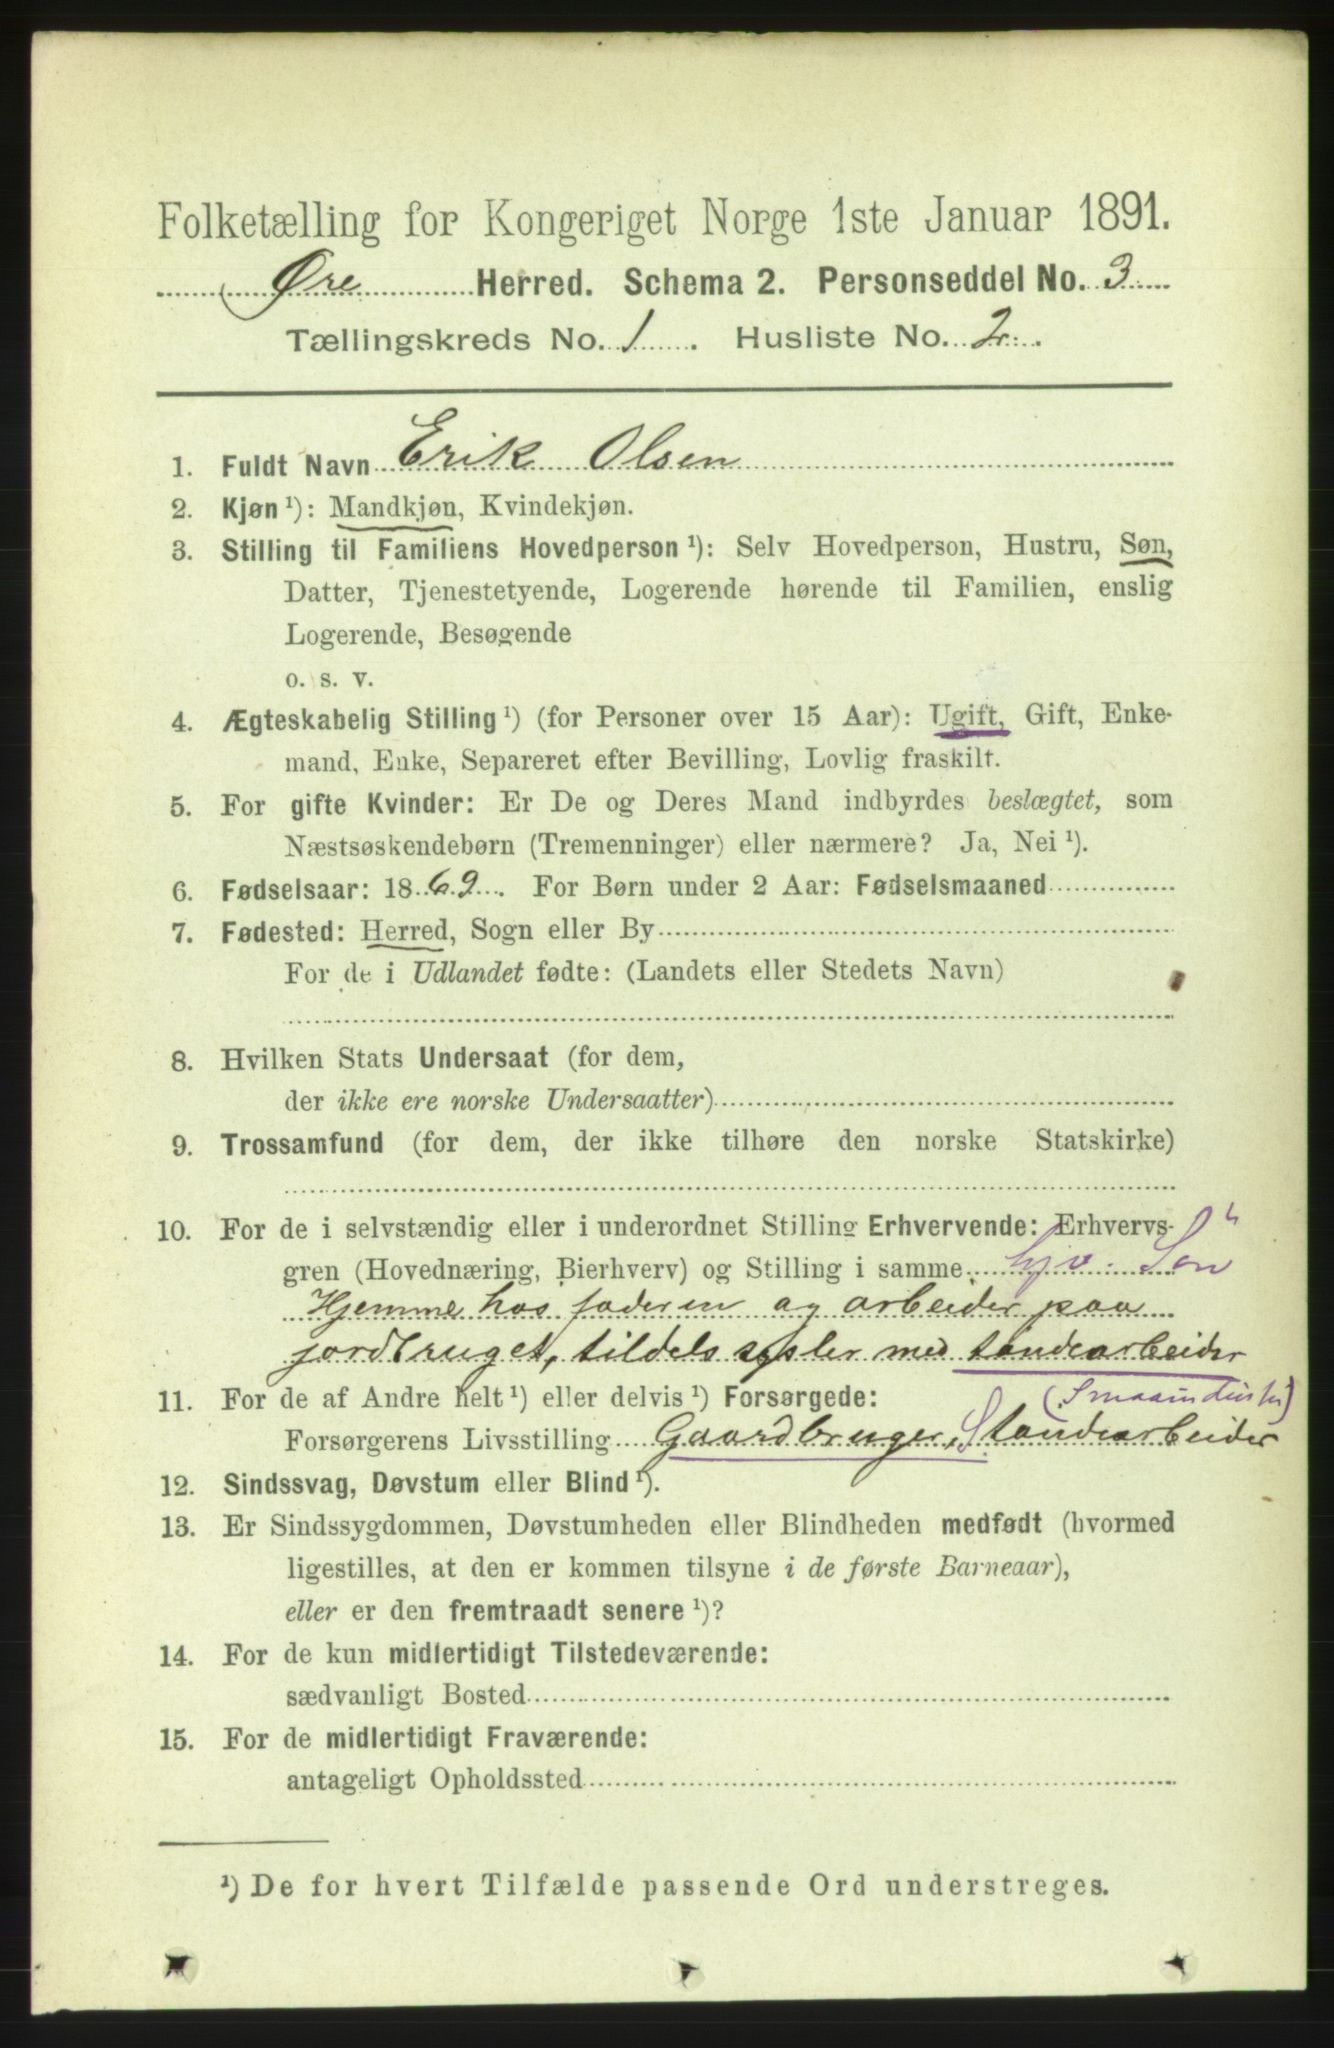 Folketælling for Kongeriget Norge 1ste Januar 1891.
Øre Herred. Schema 2. Personseddel No. 3
Tællingskreds No. 1. Husliste No. 2.
1. Fuldt Navn Erik Olsen
2. Kjøn ¹): Mandkjøn, Kvindekjøn.
3. Stilling til Familiens Hovedperson ¹): Selv Hovedperson, Hustru, Søn,
Datter, Tjenestetyende, Logerende hørende til Familien, enslig
Logerende, Besøgende
o. s. v.
4. Ægteskabelig Stilling ¹) (for Personer over 15 Aar): Ugift, Gift, Enke-
mand, Enke, Separeret efter Bevilling, Lovlig fraskilt.
5. For gifte Kvinder: Er De og Deres Mand indbyrdes beslægtet, som
Næstsøskendebørn (Tremenninger) eller nærmere? Ja, Nei ¹).
6. Fødselsaar: 1869. For Børn under 2 Aar: Fødselsmaaned
7. Fødested: Herred, Sogn eller By
For de i Udlandet fødte: (Landets eller Stedets Navn)
8. Hvilken Stats Undersaat (for dem,
der ikke ere norske Undersaatter)
9. Trossamfund (for dem, der ikke tilhøre den norske Statskirke)
10. For de i selvstændig eller i underordnet Stilling Erhvervende: Erhvervs-
gren (Hovednæring, Bierhverv) og Stilling i samme hjv. Søn
Hjemme hos faderen og arbeider paa
jordbruget, tildels sysler med tøndearbeider
11. For de af Andre helt ¹) eller delvis ¹) Forsørgede: (Smaaindustri)
Forsørgerens Livsstilling Gaardbruger, S. tøndearbeider
12. Sindssvag, Døvstum eller Blind ¹).
13. Er Sindssygdommen, Døvstumheden eller Blindheden medfødt (hvormed
ligestilles, at den er kommen tilsyne i de første Barneaar),
eller er den fremtraadt senere ¹)?
14. For de kun midlertidigt Tilstedeværende:
sædvanligt Bosted
15. For de midlertidigt Fraværende:
antageligt Opholdssted
¹) De for hvert Tilfælde passende Ord understreges.